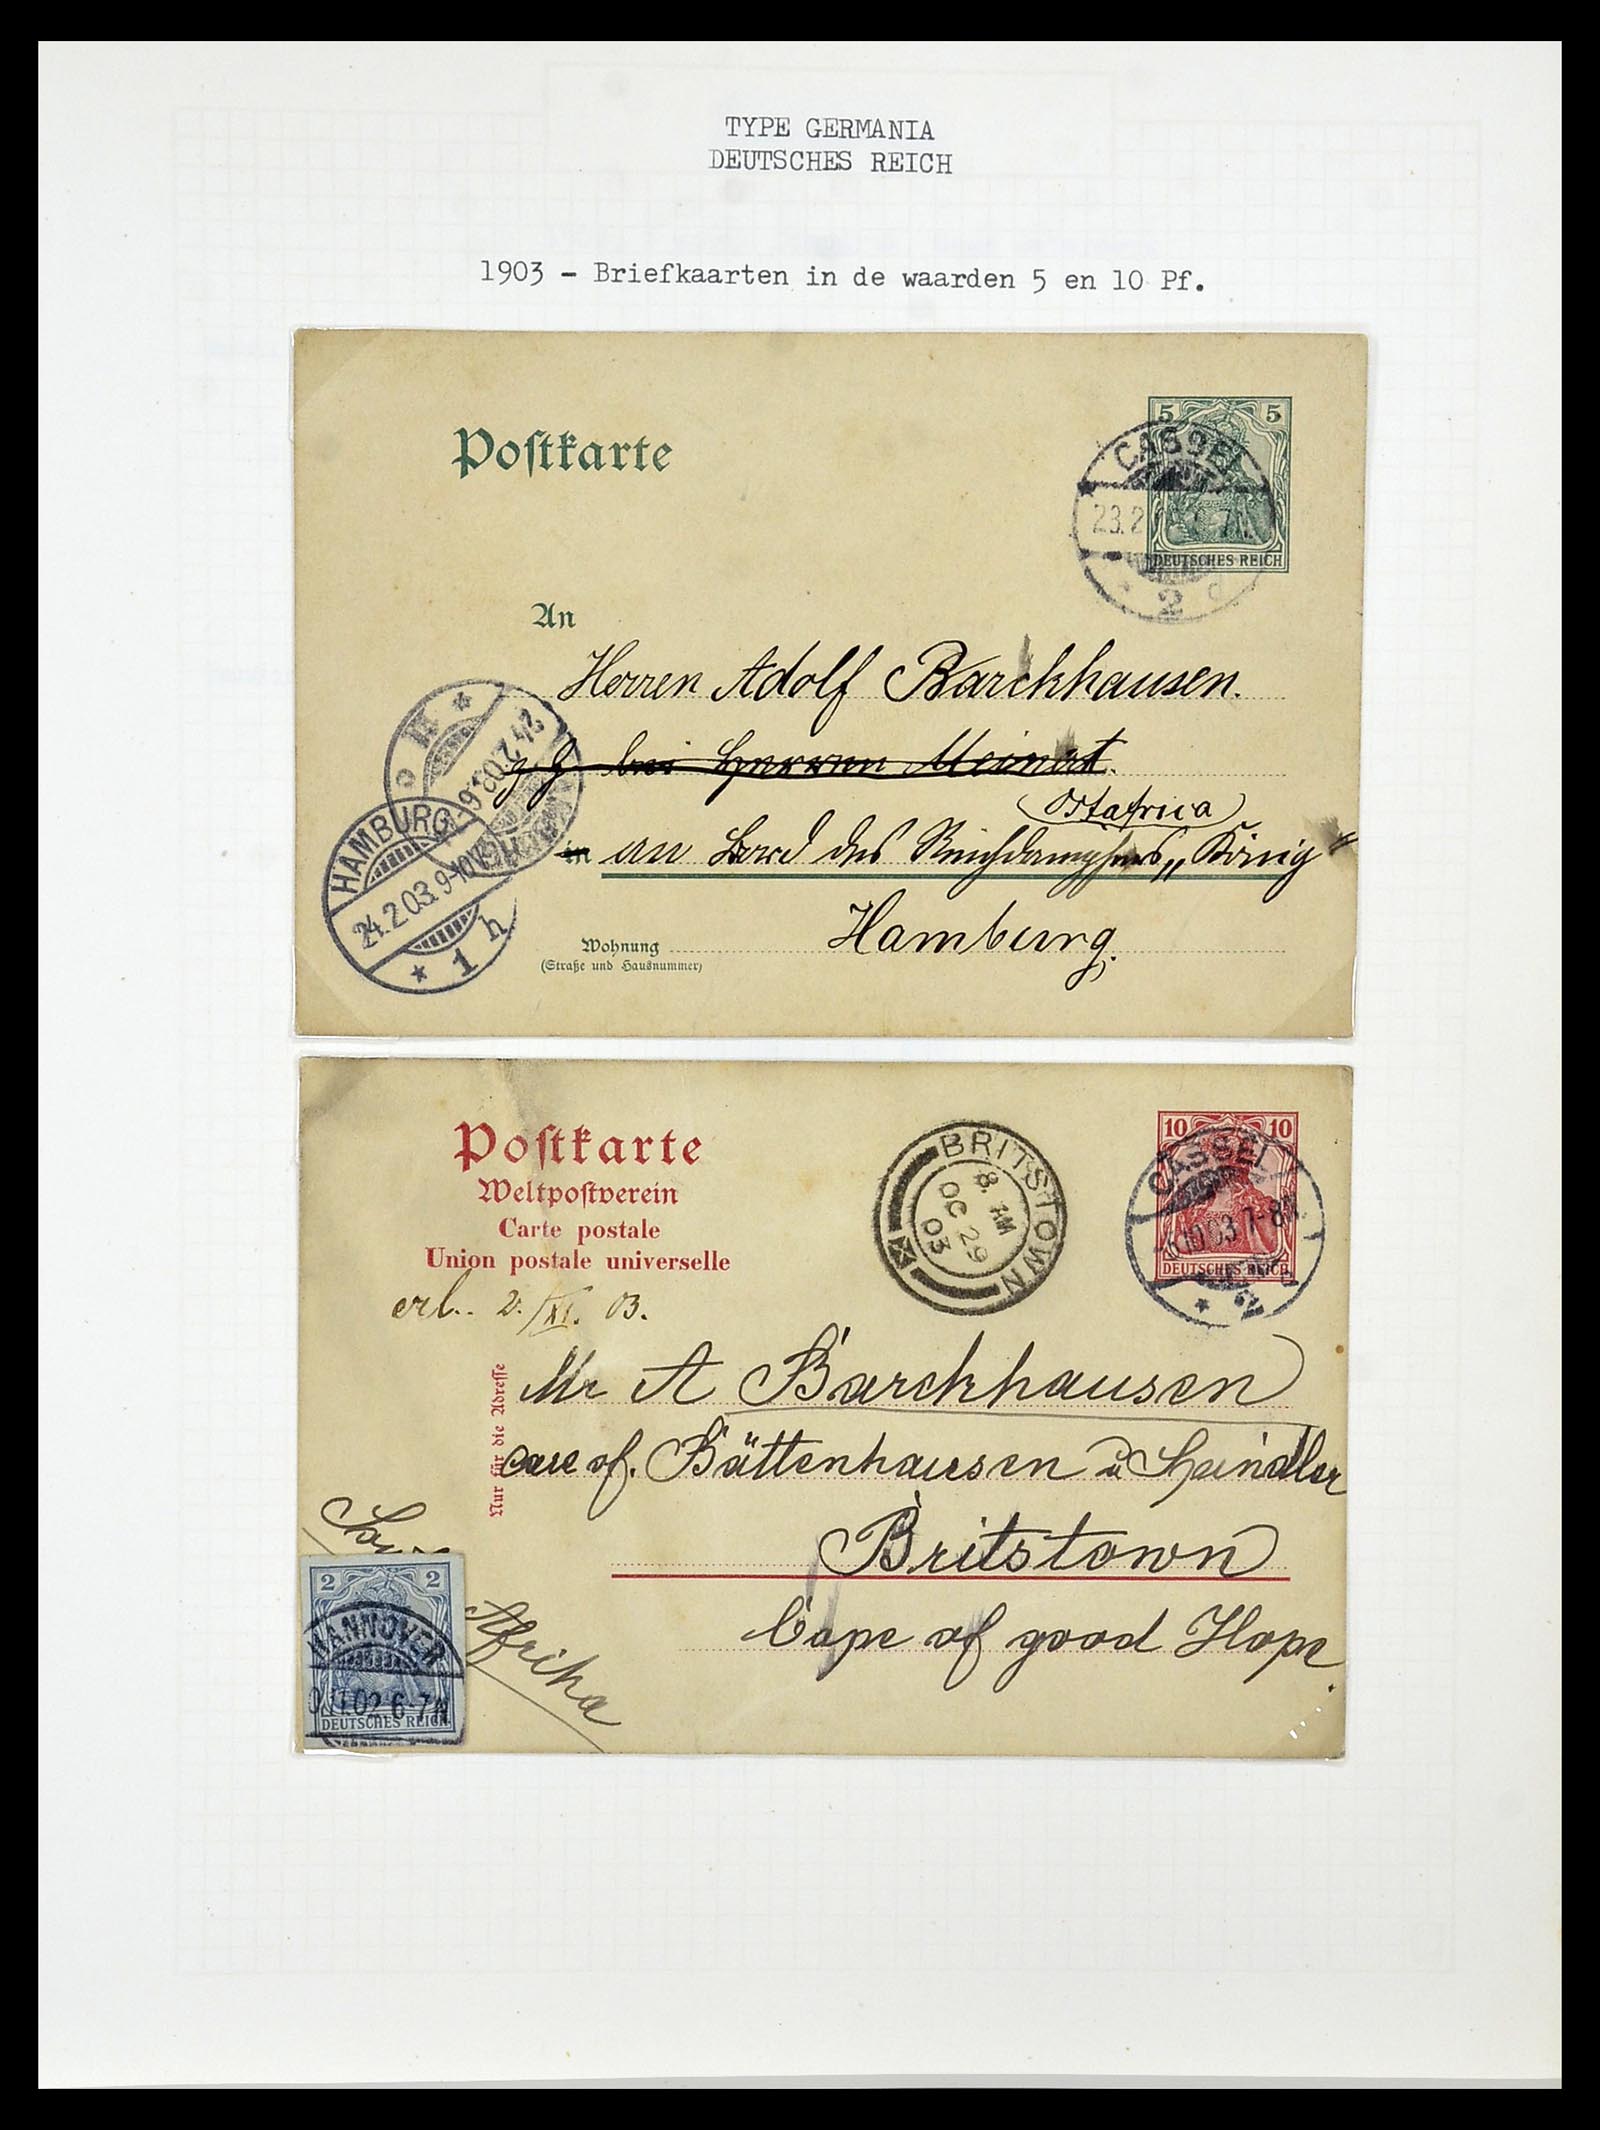 TYPE GERMANIA
DEUTSCHES REICH
1903 - Briefkaarten in de waarden 5 en 10 Pf.
Postkarte
5 5
DEUTSCHES REICH
CASSEL
23.2
2 d
An
Herren Adolf Barckhausen.
z. Z. bei Herren Meinert.
Ostafrica
in an Bord des Reichdampfers „König"
Hamburg.
Wohnung
(Straße und Hausnummer)
24.2.03.
HAMBURG
24.2.03. 9-10V.
* 1 h
Postkarte
Weltpostverein
Carte postale
Union postale universelle
erl. 2./XI. 03.
BRITSTOWN
8. AM
OC 29
03
10 10
DEUTSCHES REICH
CASSEL
10.03 7-8N
* 2
Nur für die Adresse
Mr A Barckhausen
care of. Büttenhausen u Heindler
Britstown
Cape of good Hope.
Afrika
2 2
HANNOVER
11.02 6-7N
DEUTSCHES REICH